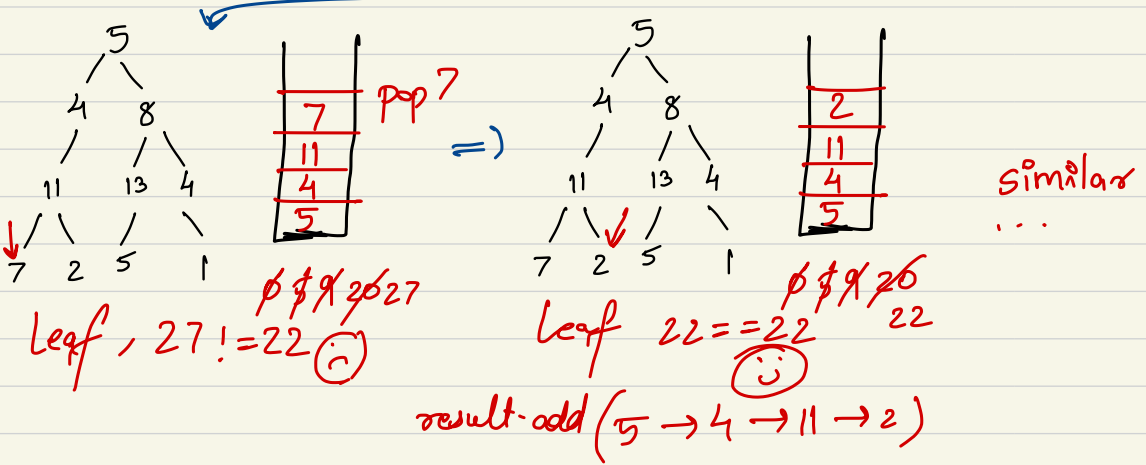 5
4 8
11 13 4
7 2 5 1
7
11
4
5
pop 7
0 5 9 20 27
Leaf, 27 != 22
=>
5
4 8
11 13 4
7 2 5 1
2
11
4
5
0 5 9 20
22
Leaf 22 == 22
similar
...
result.add(5 → 4 → 11 → 2)